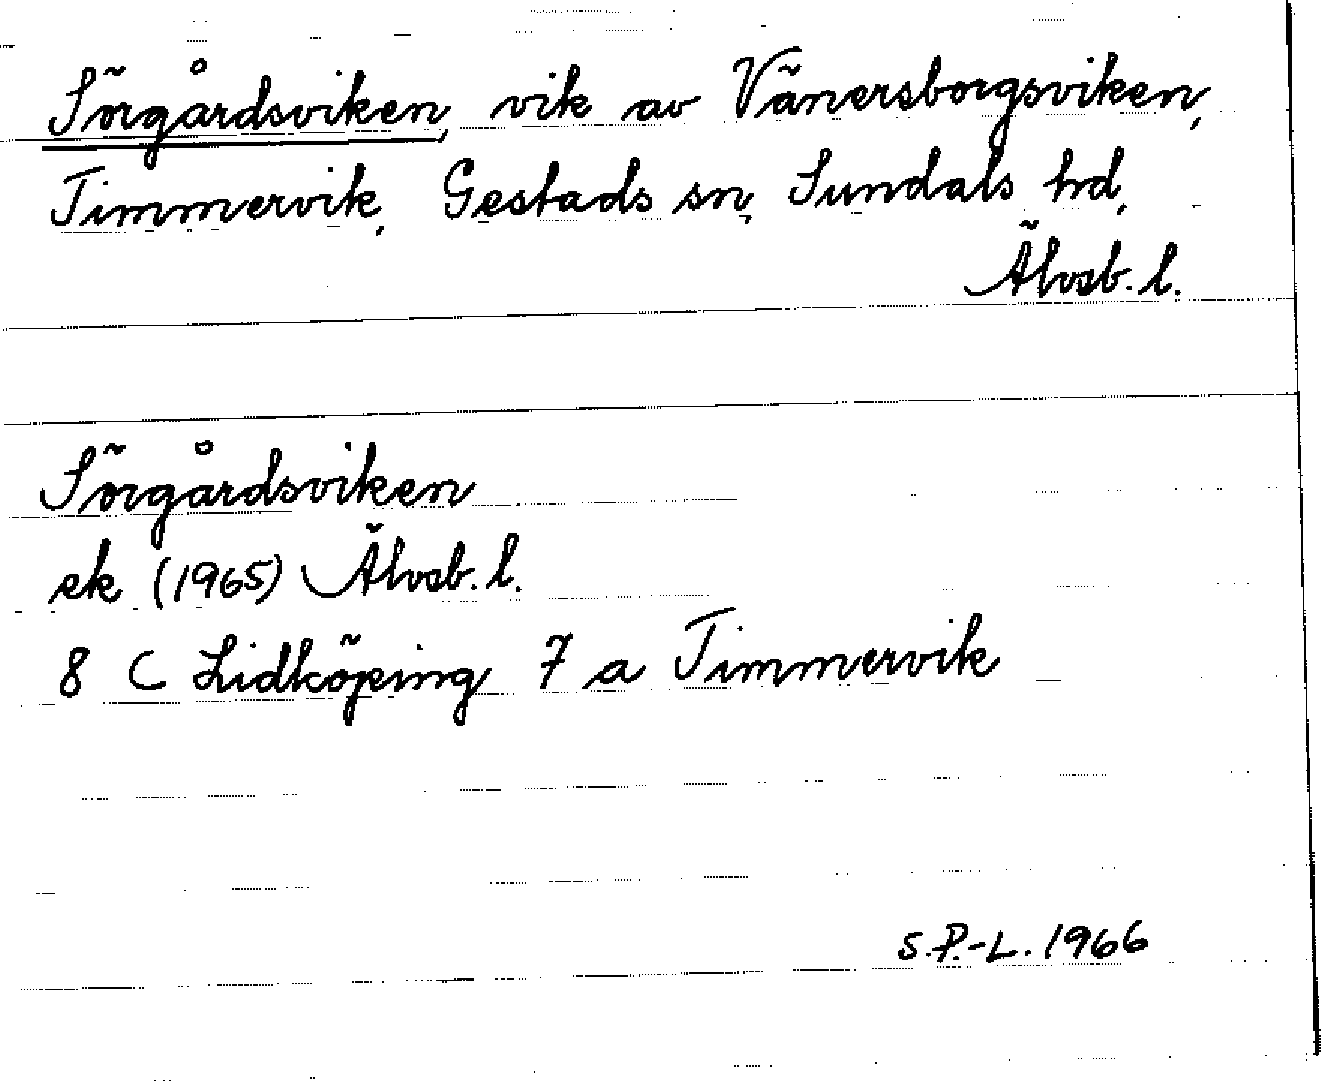 Sörgårdsviken, vik av Vänersborgsviken,
Timmervik, Gestads sn, Sundals hd,
Älvsb. l.
Sörgårdsviken
ek (1965) Älvsb. l.
8 C Lidköping 7 a Timmervik
S.P.-L. 1966